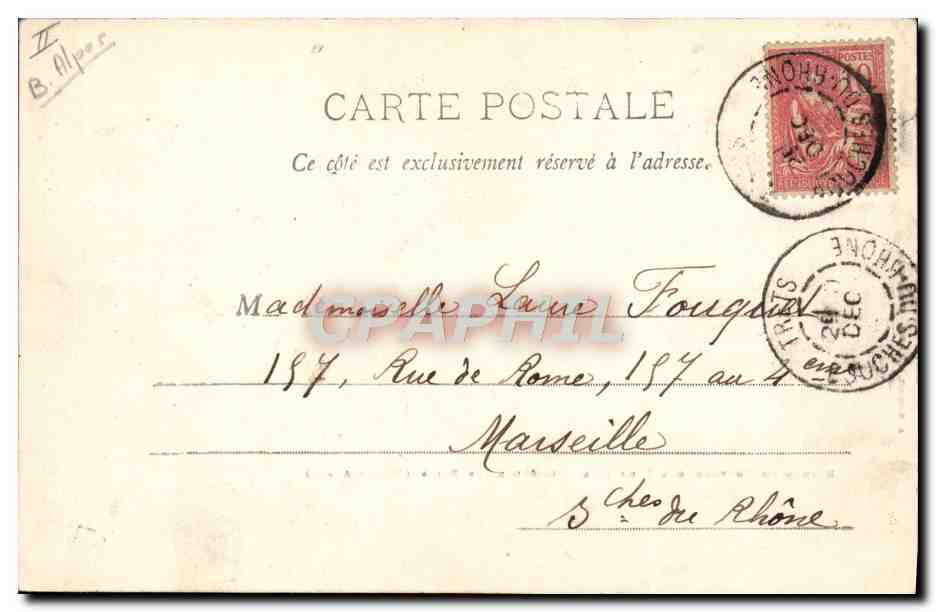 II
B. Alpes
CARTE POSTALE
Ce côté est exclusivement réservé à l'adresse.
POSTES
10
BOUCHES-DU-RHONE
DEC
Mademoiselle Laure Fouque
CPAPHIL
TRETS
29
DEC
BOUCHES-DU-RHONE
157, Rue de Rome, 157 au 4eme
Marseille
Bches du Rhône